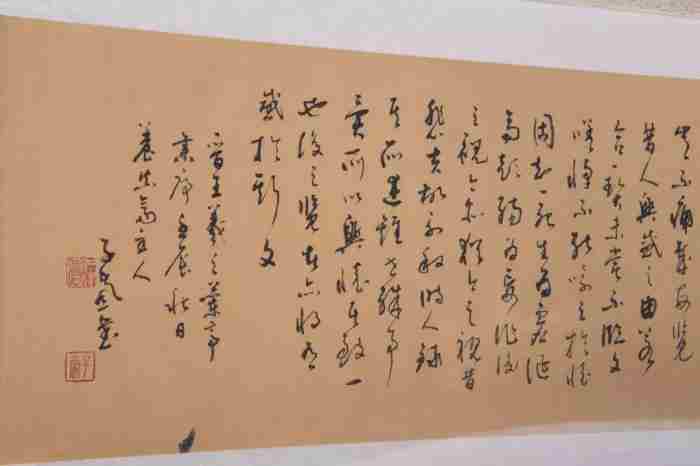 豈不痛哉每覽
昔人興感之由若
合一契未嘗不臨文
嗟悼不能喻之於懷
固知一死生為虛誕
齊彭殤為妄作後
之視今亦猶今之視昔
悲夫故列敘時人錄
其所述雖世殊事
異所以興懷其致一
也後之覽者亦將有
感於斯文
晉王羲之蘭亭
集序壬辰秋日
養齋主人
子